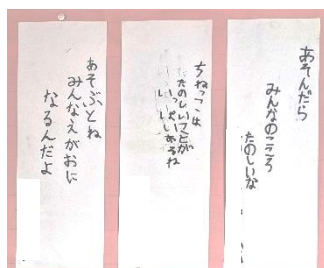 あそんだら
みんなのこころ
たのしいな
ちねっこは
たのしいことが
いっぱいあるね
あそぶとね
みんなえがおに
なるんだよ